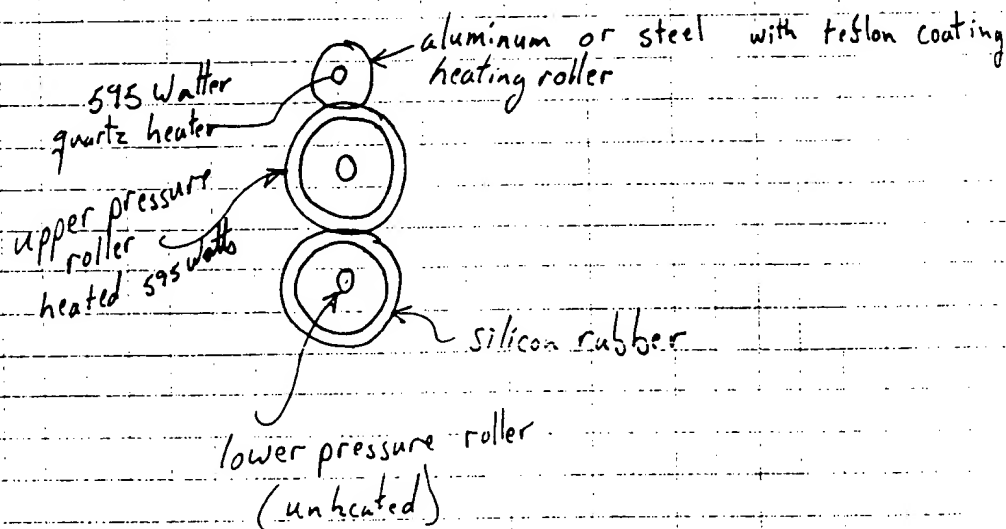 aluminum or steel with teflon coating
heating roller
595 Watter
quartz heater
upper pressure
roller
heated 595 watts
silicon rubber
lower pressure roller.
(unheated)